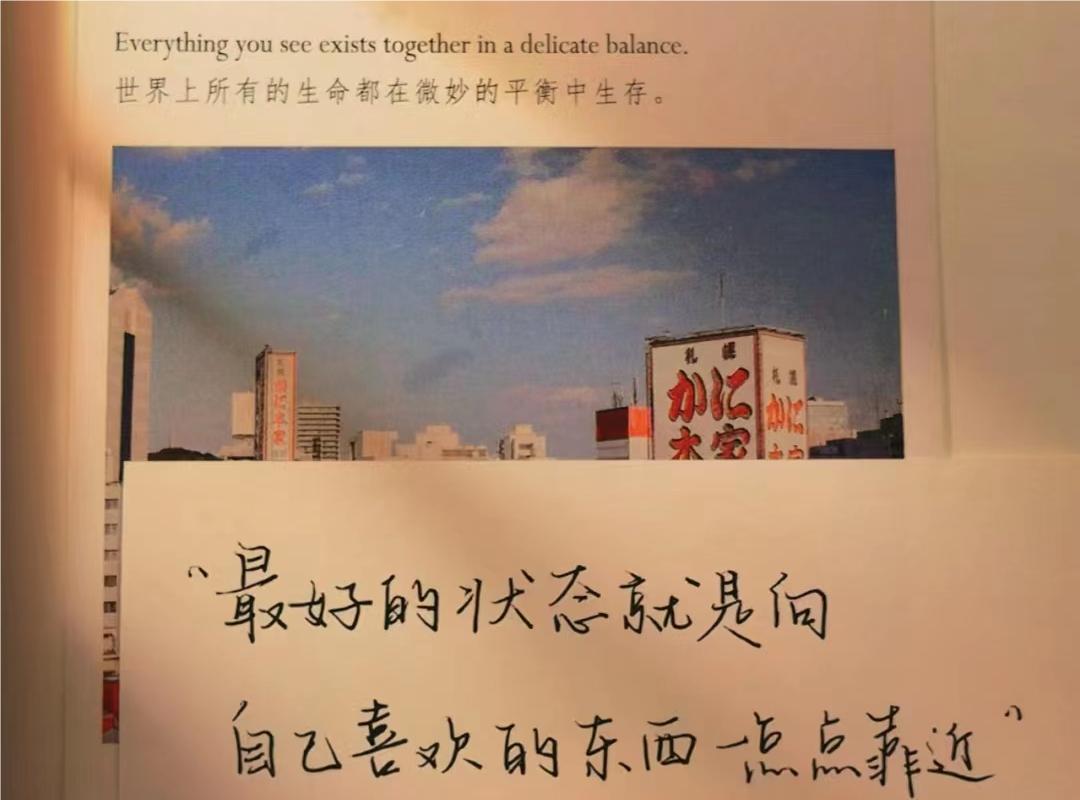 Everything you see exists together in a delicate balance.
世界上所有的生命都在微妙的平衡中生存。
札幌
かに
本家
札幌
かに
本家
札幌
かに
本
“最好的状态就是向
自己喜欢的东西一点点靠近”